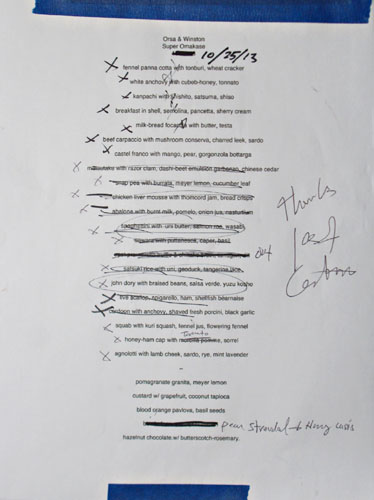 Orsa & Winston
Super Omakase
10/25/13
fennel panna cotta with tonburi, wheat cracker
white anchovy with cubeb-honey, tonnato
kanpachi with shishito, satsuma, shiso
breakfast in shell, semolina, pancetta, sherry cream
milk-bread focaccia with butter, testa
beef carpaccio with mushroom conserva, charred leek, sardo
castel franco with mango, pear, gorgonzola bottarga
matsutake with razor clam, dashi-beet emulsion chinese cedar
snap pea with burrata, meyer lemon, cucumber leaf
chicken liver mousse with thorncord jam, bread crisps
abalone with burnt milk, pomelo, onion jus, nasturtium
spaghettini with uni butter, salmon roe, wasabi
squid with puttanesca, caper, basil
satsuki rice with uni, geoduck, tangerine rice
john dory with braised beans, salsa verde, yuzu kosho
live scallop, spigarello, ham, shellfish bearnaise
with anchovy, shaved fresh porcini, black garlic
squab with kuri squash, fennel jus, flowering fennel
Tomato
honey-ham cap with pomme, sorrel
agnolotti with lamb cheek, sardo, rye, mint lavender
~
pomegranate granita, meyer lemon
custard w/ grapefruit, coconut tapioca
blood orange pavlova, basil seeds
pear
hazelnut chocolate w/ butterscotch-rosemary.
thanks